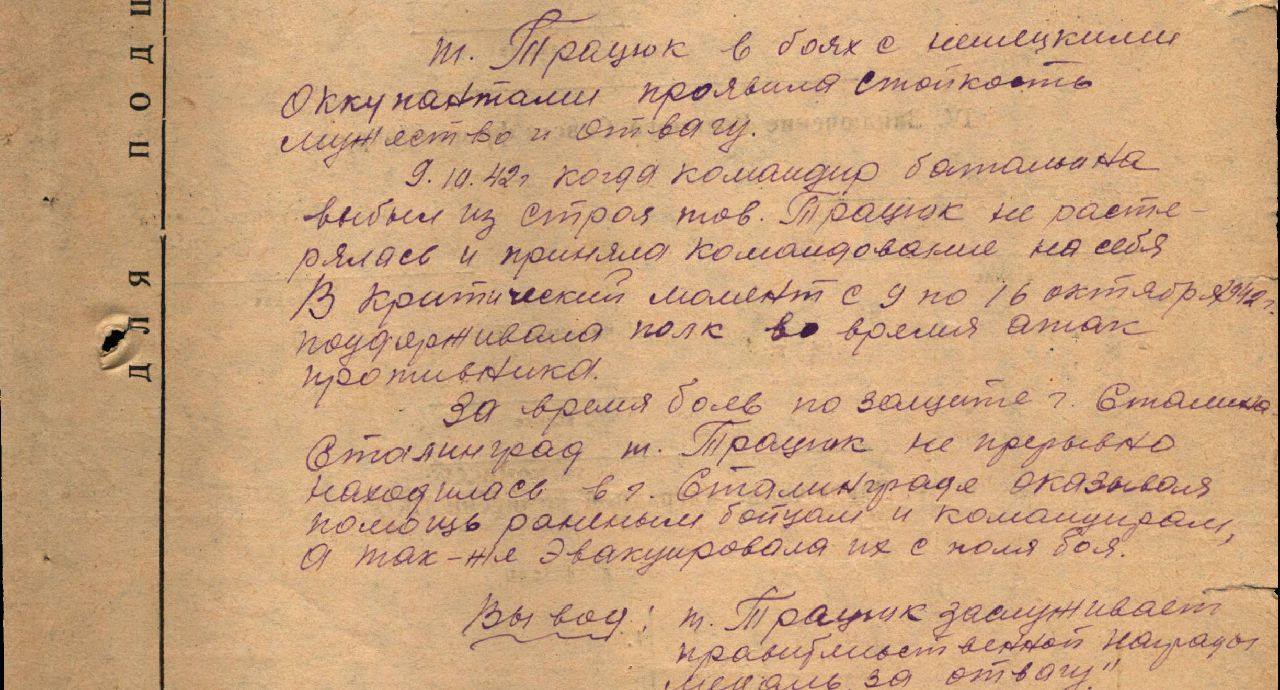 ДЛЯ ПОДШ
т. Трацюк в боях с немецкими
оккупантами проявила стойкость
мужество и отвагу.
9.10.42г когда командир батальона
выбыл из строя тов. Трацюк не расте-
рялась и приняла командование на себя
В критический момент с 9 по 16 октября 1942г.
поддерживала полк во время атак
противника.
За время боёв по защите г. Сталина
Сталинград т. Трацюк не прерывно
находилась в г. Сталинграде оказывая
помощь раненым бойцам и командирам,
а так-же эвакуировала их с поля боя.
Вывод: т. Трацюк заслуживает
правительственной награды
медаль за отвагу"